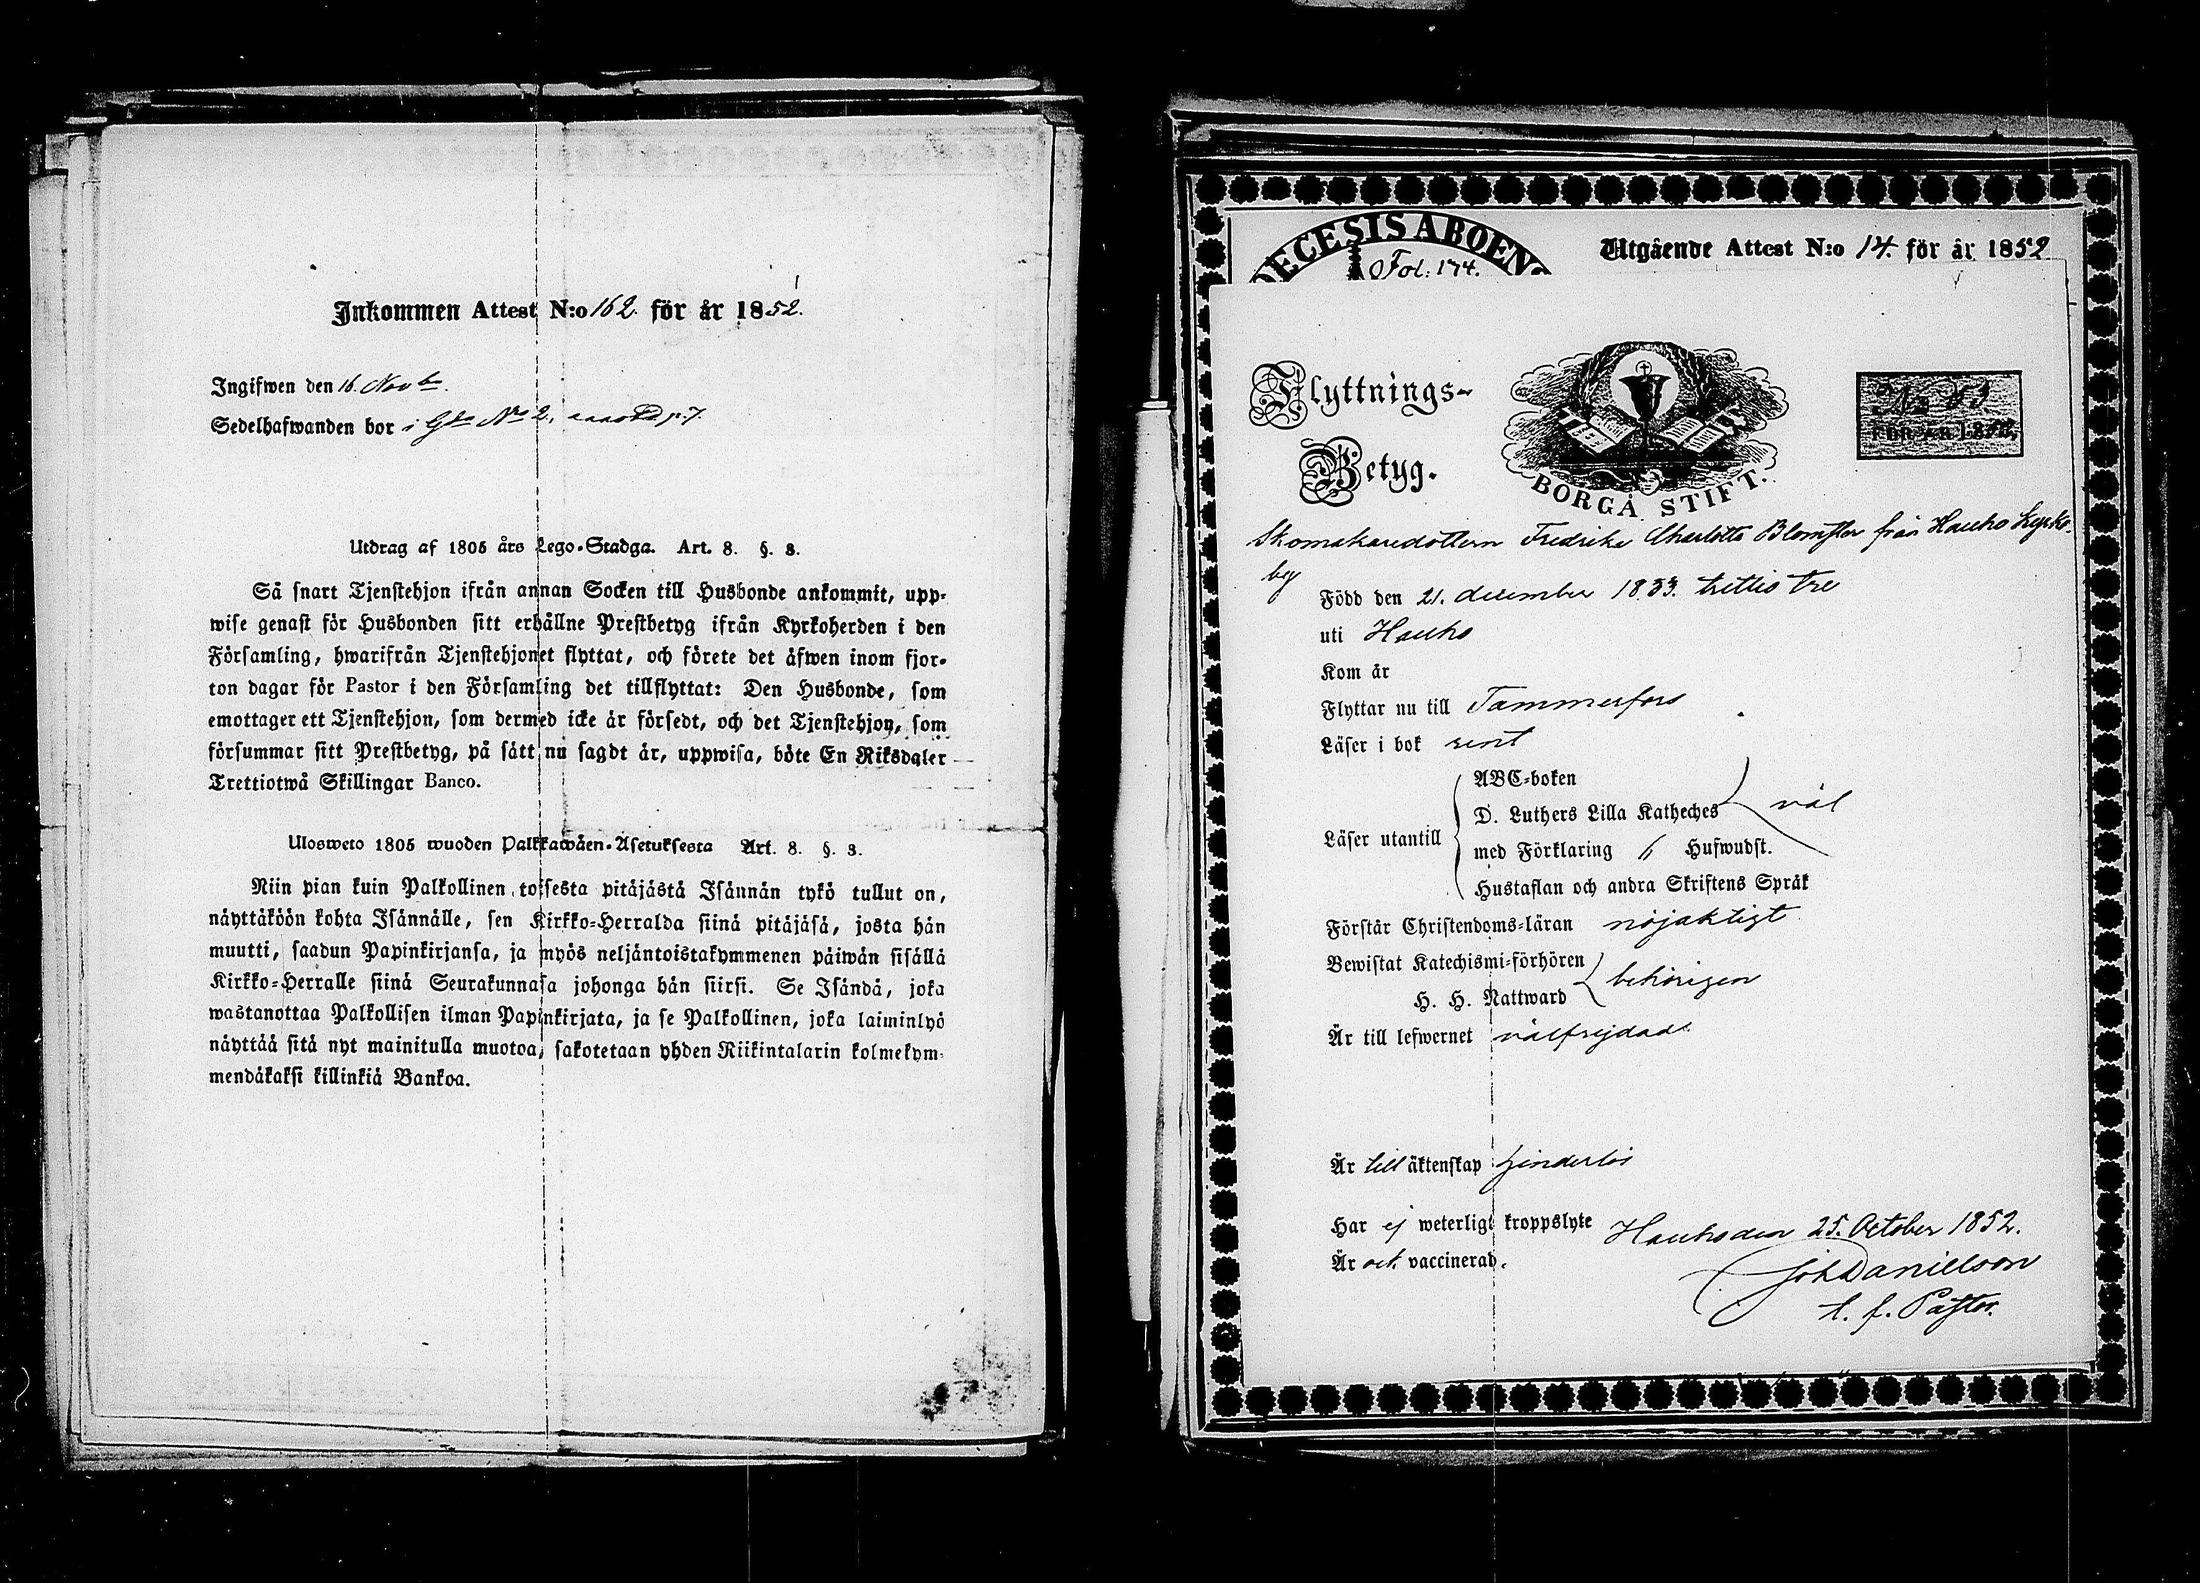 Inkommen Attest N:o 162. för år 1852.
Ingifwen den 16. Novbr.
Sedelhafwanden bor i Gdn No 2,
Utdrag af 1805 års Lego-Stadga. Art. 8. §. 3.
Så snart Tjenstehjon ifrån annan Socken till Husbonde ankommit, upp-
wise genast för Husbonden sitt erhållne Prestbetyg ifrån Kyrkoherden i den
Församling, hwarifrån Tjenstehjonet flyttat, och förete det äfwen inom fjor-
ton dagar för Pastor i den Församling det tillflyttat: Den Husbonde, som
emottager ett Tjenstehjon, som dermed icke är försedt, och det Tjenstehjon, som
försummar sitt Prestbetyg, på sätt nu sagdt är, uppwisa, böte En Riksdaler
Trettiotwå Skillingar Banco.
Ulosweto 1805 wuoden Palkkawäen-Asetuksesta Art. 8. §. 3.
Niin pian kuin Palkollinen toisesta pitäjästä Isännän tykö tullut on,
näyttäköön kohta Isännälle, sen Kirkko-Herralda siinä pitäjäsä, josta hän
muutti, saadun Papinkirjansa, ja myös neljäntoistakymmenen päiwän sisällä
Kirkko-Herralle siinä Seurakunnasa johonga hän siirsi. Se Isändä, joka
wastanottaa Palkollisen ilman Papinkirjata, ja se Palkollinen, joka laiminlyö
näyttää sitä nyt mainitulla muotoa, sakotetaan yhden Riikintalarin kolmekym-
mendäkaksi killinkiä Bankoa.
ECESIS ABOENS
Fol: 174.
Utgående Attest N:o 14. för år 1852
Flyttnings-
Betyg.
BORGÅ STIFT.
No 83
FÖR ÅR 1852,
Skomakaredottern Fredrika Charlotta Blomster från Hauho Kyrko-
by
Född den 21. december 1833. trettio tre
uti Hauho
Kom år
Flyttar nu till Tammerfors
Läser i bok rent
Läser utantill
ABC-boken
D. Luthers Lilla Katheches
med Förklaring 6 Hufwudst.
Hustaflan och andra Skriftens Språk
väl
Förstår Christendoms-läran nöjaktigt
Bewistat Katechismi-förhören
H. H. Nattward
behörigen
Är till lefwernet välfrejdad
Är till äktenskap hinderlös
Har ej weterligt kroppslyte
Är ock vaccinerad.
Hauho den 25. October 1852.
Joh Danielson
t. f. Pastor.